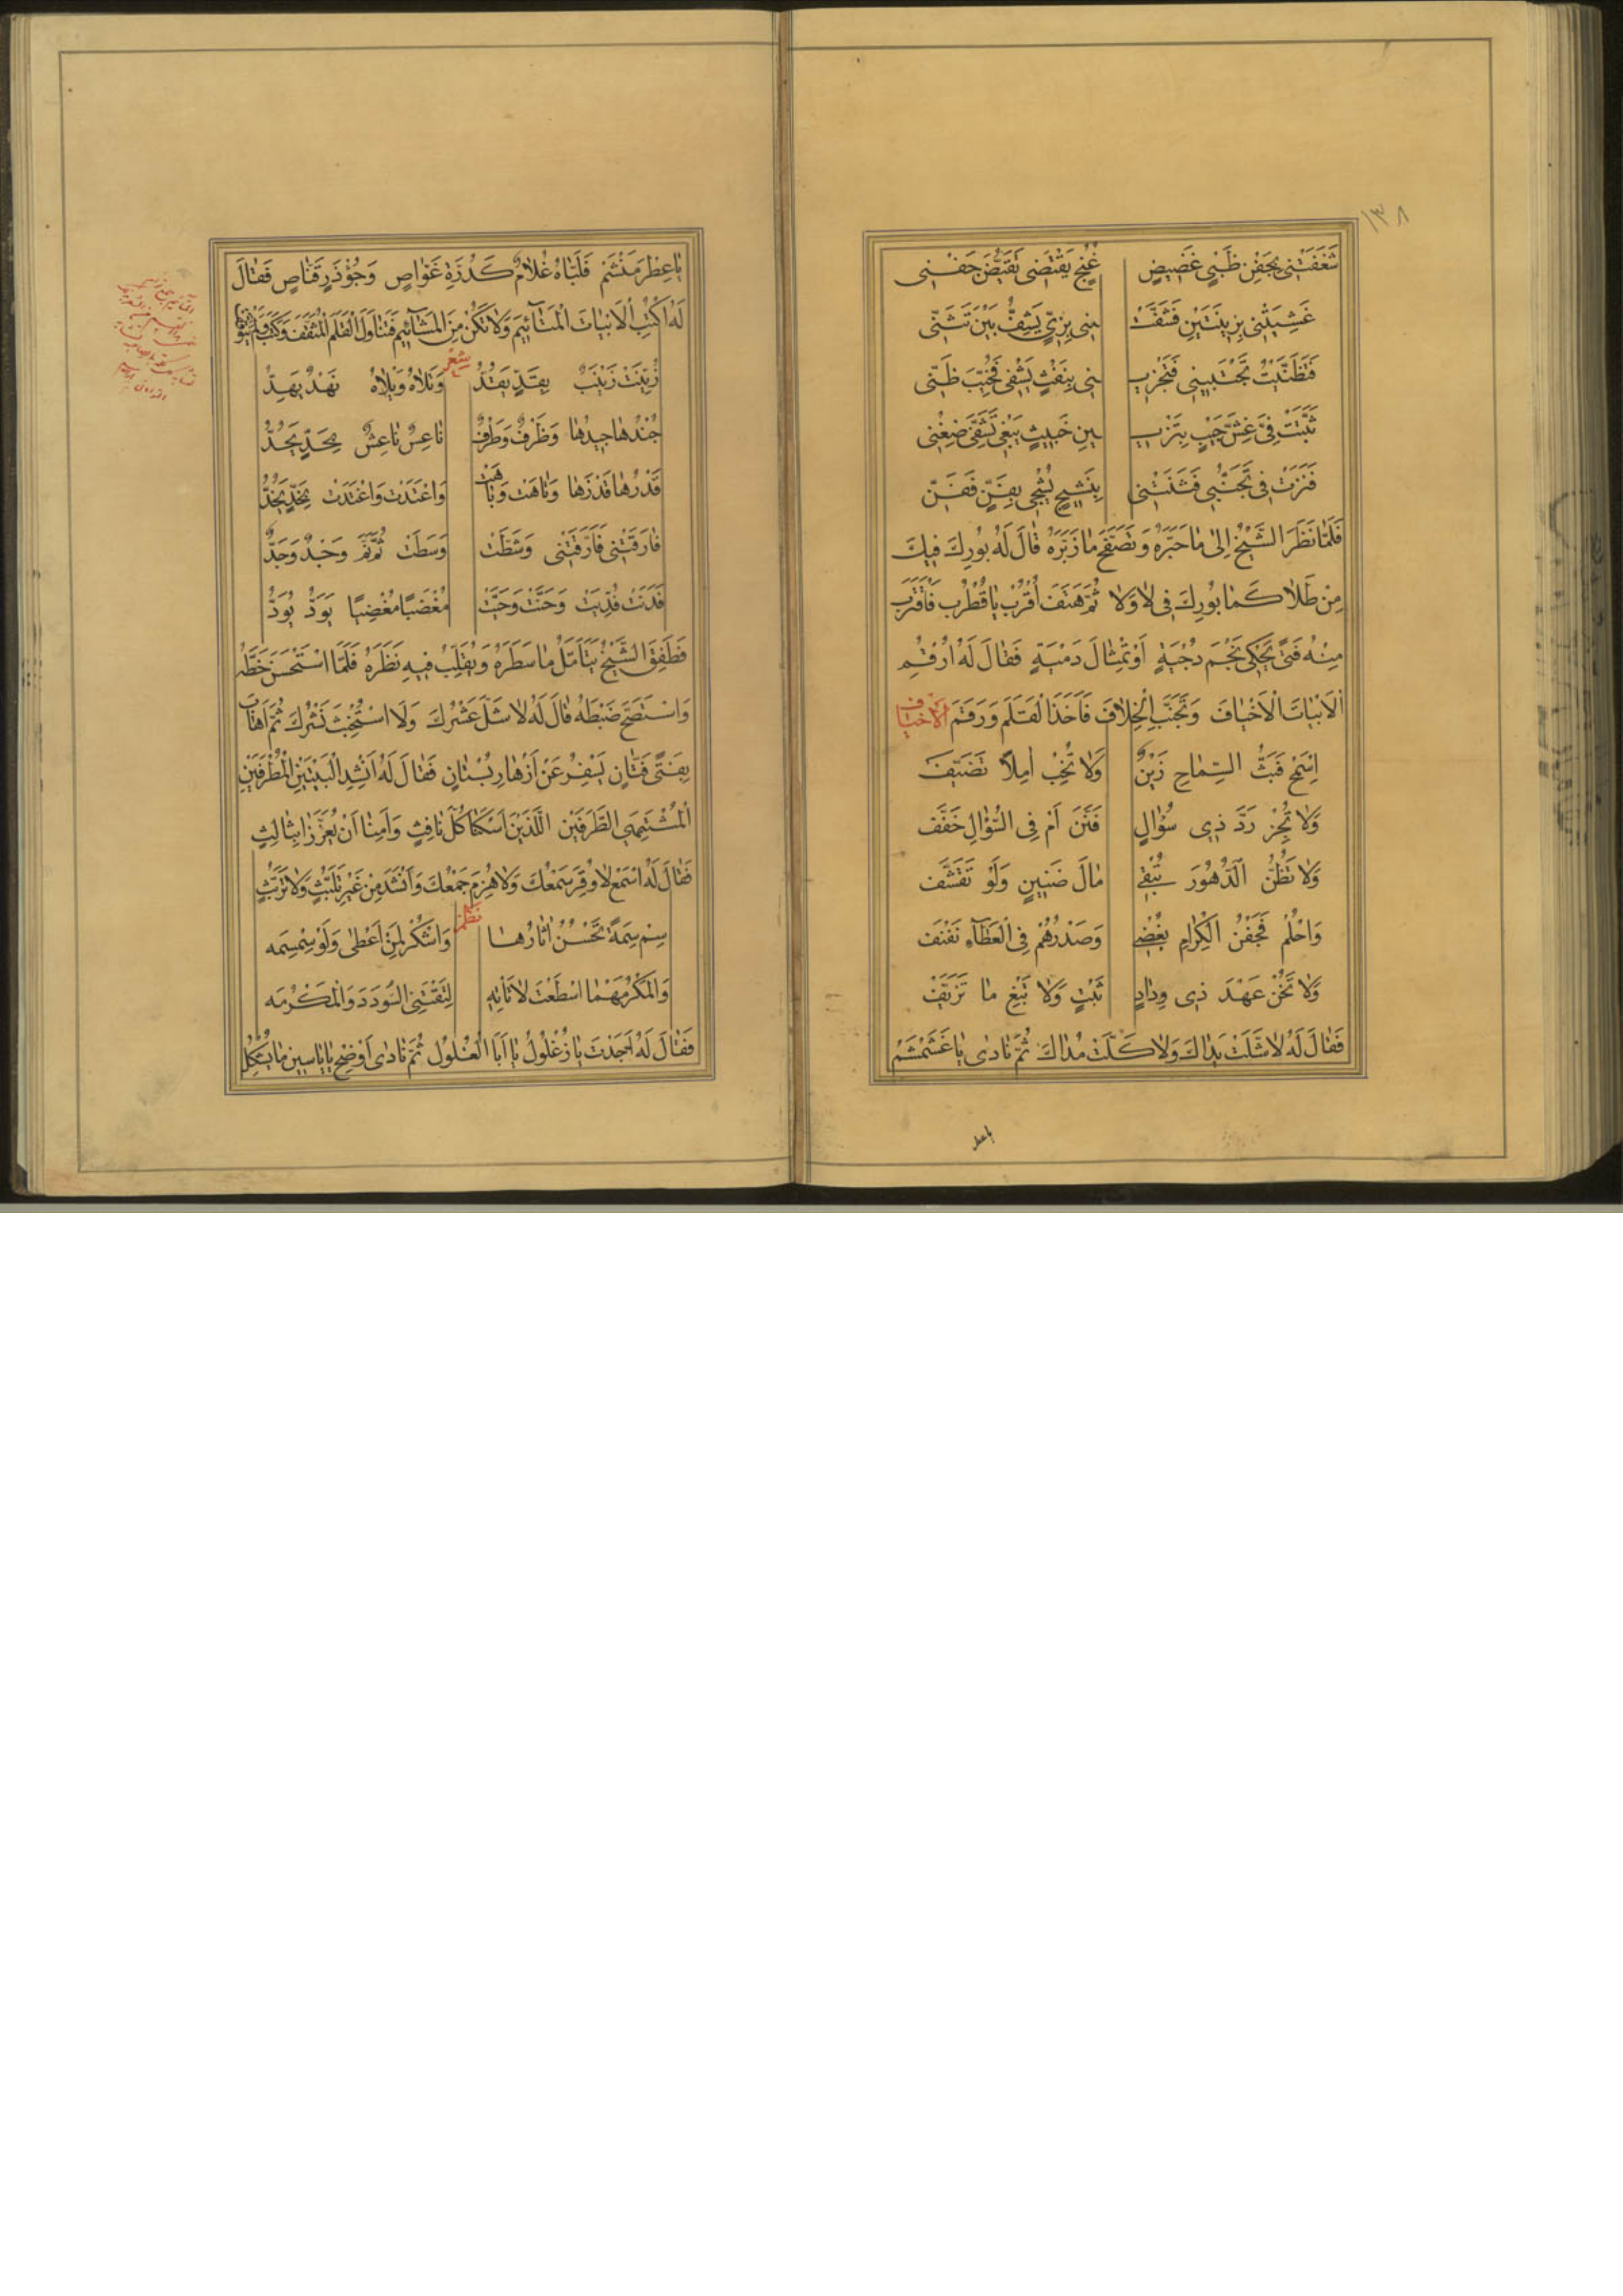 ١٣٨
شَغَفَتْنِى بِجَفْنِ ظَبْىٍ غَضِيضٍ غُنُجٍ يَقْتَضِى تَقَيُّضَ جَفْنِى
غَشِيَتْنِى بِزِينَتَيْنِ فَشَفَّتْ نِى بِزِىٍّ يَشِفُّ بَيْنَ تَثَنِّى
فَتَظَنَّيْتُ تَجْتَبِينِى فَتَجْزِي نِى بِنَفْثٍ يَشْفِى فَخُيِّبَ ظَنِّى
ثَبَّتَتْ فِىَّ غِشَّ جَيْبٍ بِتَزْيِي ينِ خَبِيثٍ يَبْغِى تَشَفِّىَ ضِغْنِى
فَنَزَتْ فِى تَجَنُّبِى فَثَنَتْنِى بِنَشِيجٍ يُشْجِى بِفَنٍّ فَفَنِّ
فَلَمَّا نَظَرَ الشَّيْخُ إِلَى مَا حَبَّرَهُ وَتَصَفَّحَ مَا زَبَرَهُ قَالَ لَهُ بُورِكَ فِيكَ
مِنْ طَلَا كَمَا بُورِكَ فِى لَا وَلَا ثُمَّ هَتَفَ اُقْرُبْ يَا قُطْرُبُ فَاقْتَرَبَ
مِنْهُ فَتًى يَحْكِى نَجْمَ دُجْيَةٍ أَوْ تِمْثَالَ دُمْيَةٍ فَقَالَ لَهُ ارْقُمِ
الْاَبْيَاتَ الْاَخْيَافَ وَتَجَنَّبِ الْخِلَافَ فَاَخَذَ الْقَلَمَ وَرَقَمَ الأخياف
اِسْمَحْ فَبَثُّ السِّمَاحِ زَيْنٌ وَلَا تُخِبْ اٰمِلًا تَضَيَّفَ
وَلَا تُجِزْ رَدَّ ذِى سُؤَالٍ فَنَّنَ أَمْ فِى السُّؤَالِ خَفَّفَ
وَلَا تَظُنَّ الدُّهُورَ تُبْقِى مَالَ ضَنِينٍ وَلَوْ تَقَشَّفَ
وَاحْلُمْ فَجَفْنُ الْكِرَامِ يُغْضِى وَصَدْرُهُمْ فِى الْعَطَآءِ نَفْنَفَ
وَلَا تَخُنْ عَهْدَ ذِى وِدَادٍ ثَبْتٍ وَلَا تَبْغِ مَا تَزَيَّفَ
فَقَالَ لَهُ لَا شَلَّتْ يَدَاكَ وَلَا كَلَّتْ مُدَاكَ ثُمَّ نَادَى يَا عَشَمْشَمُ
يا عطر
يَا عِطْرَ مَنْشَمَ فَلَبَّاهُ غُلَامٌ كَدُرَّةِ غَوَّاصٍ وَجُؤْذَرِ قَنَّاصٍ فَقَالَ
لَهُ اكْتُبِ الْاَبْيَاتَ الْمَتَائِيمَ وَلَا تَكُنْ مِنَ الْمَشَائِيمِ فَتَنَاوَلَ الْقَلَمَ الْمُثَقَّفَ وَكَتَبَ وَلَمْ يَتَوَقَّفْ
شعر
زُيِّنَتْ زَيْنَبٌ بِقَدٍّ يَقُدُّ وَتَلَاهُ وَيْلَاهُ نَهْدٌ يَهُدُّ
جُنْدُهَا جِيدُهَا وَظَرْفٌ وَطَرْفٌ نَاعِسٌ نَاعِشٌ بِحَدٍّ يَحُدُّ
قَدْرُهَا قَدْ زَهَا وَتَاهَتْ وَبَاهَتْ وَاعْتَدَتْ وَاغْتَدَتْ بِخَدٍّ يَخُدُّ
فَارَقَتْنِى فَاَرَّقَتْنِى وَشَطَّتْ وَسَطَتْ ثُمَّ نَمَّ وَجْدٌ وَجَدُّ
فَدَنَتْ فُدِيَتْ وَحَنَّتْ وَحَيَّتْ مُغْضَبًا مُغْضِيًا يَوَدُّ يُوَدُّ
فَطَفِقَ الشَّيْخُ يَتَاَمَّلُ مَا سَطَرَهُ وَيُقَلِّبُ فِيهِ نَظَرَهُ فَلَمَّا اسْتَحْسَنَ خَطَّهُ
وَاسْتَصَحَّ ضَبْطَهُ قَالَ لَهُ لَا شَلَّ عَشْرُكَ وَلَا اسْتُخْبِثَ نَشْرُكَ ثُمَّ اَهَابَ
بِفَتًى فَتَّانٍ يَسْفِرُ عَنْ اَزْهَارِ بُسْتَانٍ فَقَالَ لَهُ اَنْشِدِ الْبَيْتَيْنِ الْمُطْرَفَيْنِ
الْمُشْتَبِهَىِ الطَّرَفَيْنِ اللَّذَيْنِ اَسْكَتَا كُلَّ نَافِثٍ وَاَمِنَا اَنْ يُعَزَّزَا بِثَالِثٍ
فَقَالَ لَهُ اسْمَعْ لَا وُقِرَ سَمْعُكَ وَلَا هُزِمَ جَمْعُكَ وَاَنْشَدَ مِنْ غَيْرِ تَلَبُّثٍ وَلَا تَرَيُّثٍ
نظم
سِمْ سِمَةً تَحْسُنُ اٰثَارُهَا وَاشْكُرْ لِمَنْ اَعْطَى وَلَوْ سِمْسِمَه
وَالْمَكْرُ مَهْمَا اسْطَعْتَ لَا تَاْتِهِ لِتَقْتَنِى السُّودَدَ وَالْمَكْرُمَه
فَقَالَ لَهُ اَجَدْتَ يَا زُغْلُولُ يَا اَبَا الْغُلُولِ ثُمَّ نَادَى اَوْضِحْ يَا يَاسِينُ مَا يُشْكِلُ